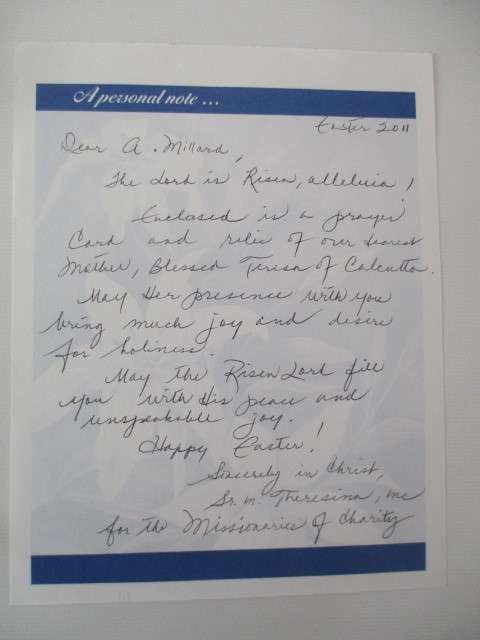 A personal note ...
Easter 2011
Dear A. Millard,
The Lord is Risen, alleluia!
Enclosed is a prayer
Card and relic of our dearest
Mother, Blessed Teresa of Calcutta.
May Her presence with you
bring much joy and desire
for holiness.
May the Risen Lord fill
you with His peace and
unspeakable joy.
Happy Easter!
Sincerely in Christ,
Sr. M. Theresina, mc
for the Missionaries of Charity